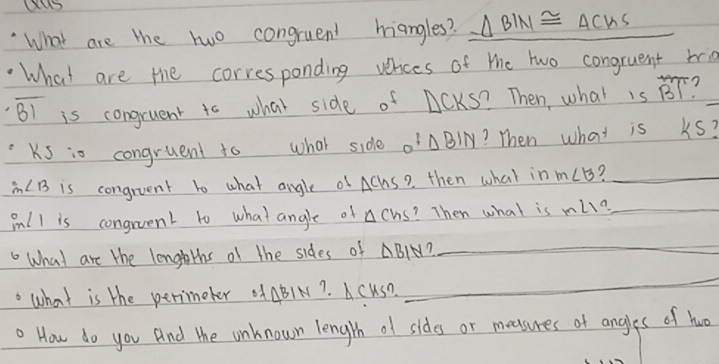 • What are the two congruent triangles? Δ BIN ≅ ΔCKS
• What are the corresponding vetices of the two congruent tria
• BI is congruent to what side of ΔCKS? Then, what is BI?
• KS is congruent to what side of ΔBIN? Then what is KS?
m∠B is congruent to what angle of ΔCKS? then what in m∠B?
m∠I is congruent to what angle of ΔCKS? Then what is m∠I?
• What are the lengths of the sides of ΔBIN?
• What is the perimeter of ΔBIN? ΔCKS?
• How do you find the unknown length of sides or measures of angles of two